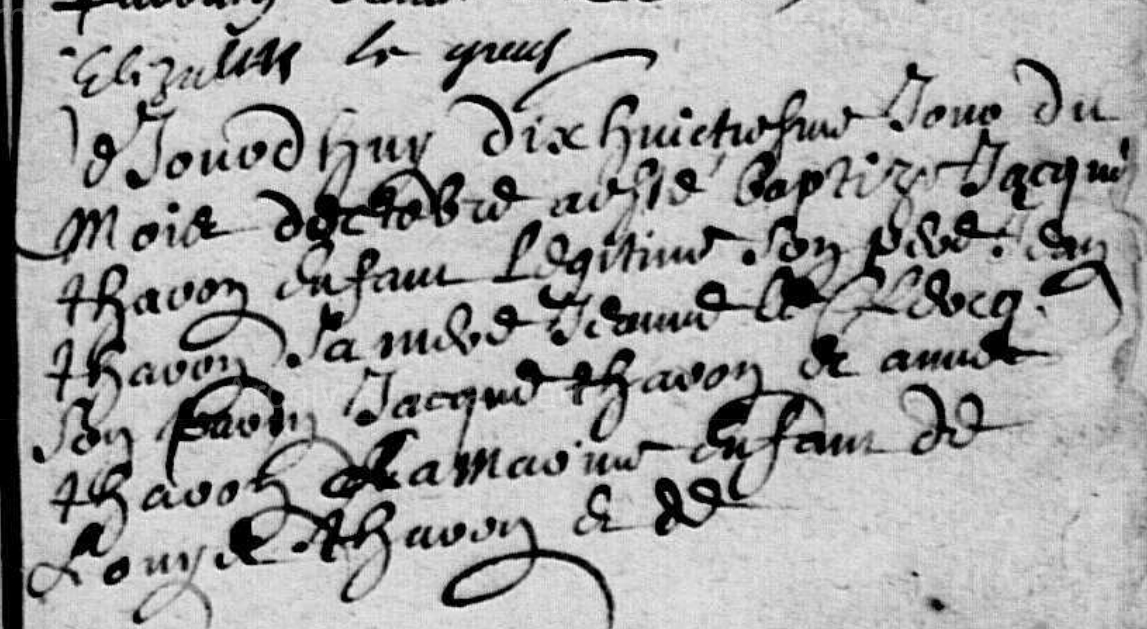 Elizabeth le
Ce Jourdhuy dix huictiesme Jour du
Mois doctobre a esté baptizé Jacque
tharon enfant Legitime Son pere Jean
tharon Sa mere Jeanne le Clercq
Son parin Jacque tharon et anne
tharon La Marine enfant de
Louys tharon et de